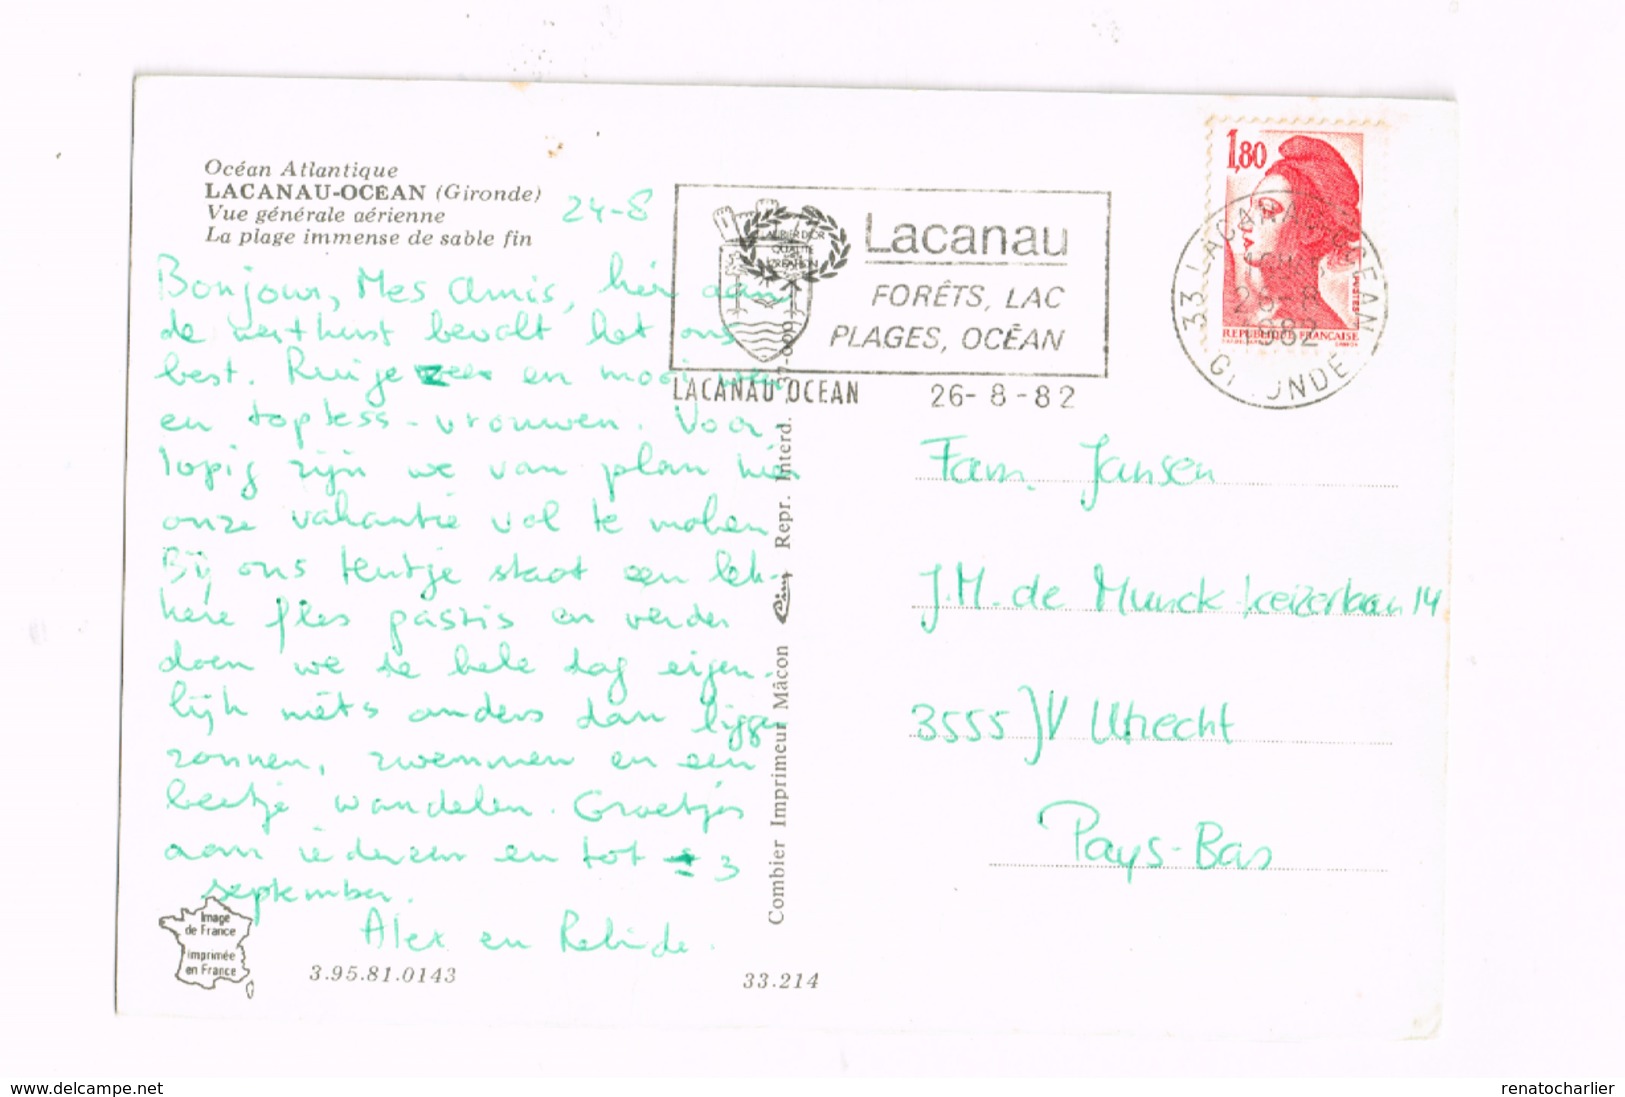 Océan Atlantique
LACANAU-OCEAN (Gironde)
Vue générale aérienne
La plage immense de sable fin
24-8
Bonjour, Mes Amis, hier aan
de westkust bevalt het ons
best. Ruige zee en mooi
en topless-vrouwen. Voor-
lopig zijn we van plan hier
onze vakantie vol te maken
Bij ons tentje staat een lek-
kere fles pastis en verder
doen we de hele dag eigen-
lijk niets anders dan liggen
zonnen, zwemmen en een
beetje wandelen. Groetjes
aan iedereen en tot 3
september.
Alex en
Image
de France
imprimée
en France
3.95.81.0143
33.214
Combier Imprimeur Mâcon
Repr. Interd.
LAURIER D'OR
QUALITE
RECREATION
Lacanau
FORÊTS, LAC
PLAGES, OCÉAN
LACANAU OCEAN
26-8-82
33 LACANAU-OCEAN
26-8
1982
GIRONDE
1,80
POSTES
REPUBLIQUE FRANÇAISE
Fam. Jansen
J.M. de Munck Keizerlaan 14
3555 JV Utrecht
Pays-Bas
www.delcampe.net
renatocharlier